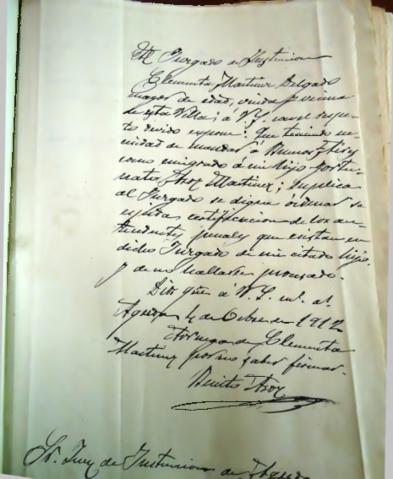 Al Juzgado de Instruccion
Clementa Martinez Delgado
mayor de edad, viuda y vecina
de esta Villa; á V. S. con el respe-
to devido expone: Que teniendo ne-
cesidad de mandar á Buenos Aires
como emigrado á mi hijo Fortu-
nato Martinez; Suplica
al Juzgado se digne órdenar se
expida certificacion de los an-
tecedentes penales que existan en
dicho Juzgado de mi citado hijo,
y de no hallarse procesado.
Dios gũe á V. S. m. a.
4 de Octubre de 1912
A ruego de Clementa
Martinez por no saber firmar.
Benito
Sr. Juez de Instruccion de